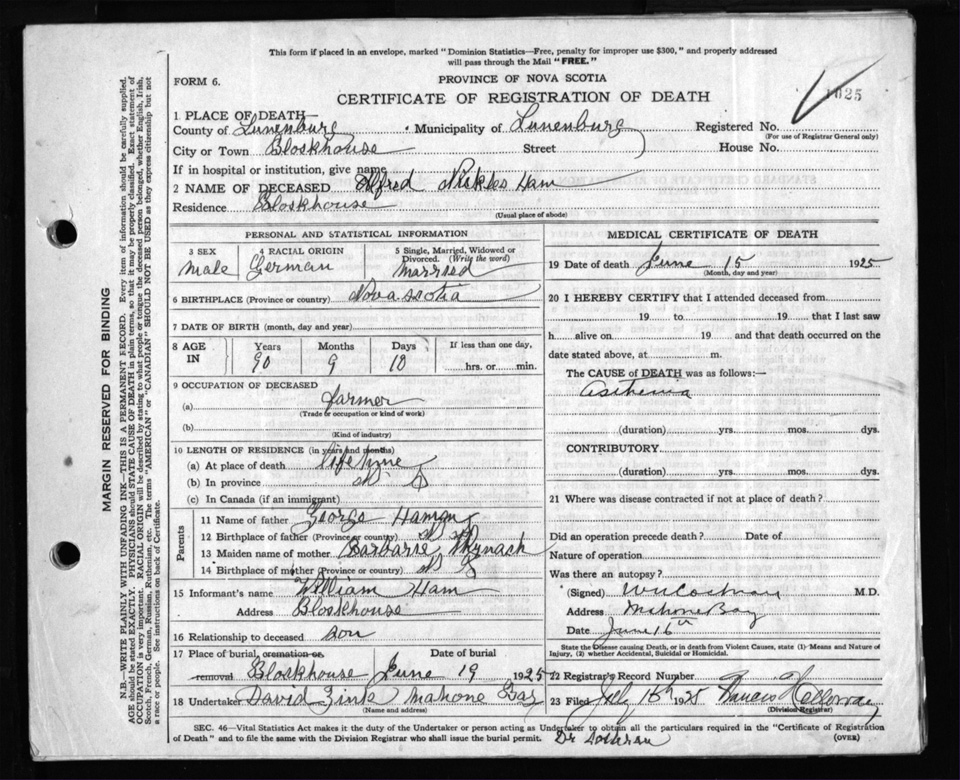 This form if placed in an envelope, marked "Dominion Statistics—Free, penalty for improper use $300," and properly addressed
will pass through the Mail "FREE."
FORM 6.
PROVINCE OF NOVA SCOTIA
CERTIFICATE OF REGISTRATION OF DEATH
1925
1 PLACE OF DEATH
County of Lunenburg Municipality of Lunenburg Registered No.
(For use of Registrar General only)
City or Town Blockhouse Street House No.
If in hospital or institution, give name
2 NAME OF DECEASED Alfred Nickles Ham
Residence Blockhouse
(Usual place of abode)
PERSONAL AND STATISTICAL INFORMATION
3 SEX 4 RACIAL ORIGIN 5 Single, Married, Widowed or
Divorced. (Write the word)
male German married
6 BIRTHPLACE (Province or country) Nova scotia
7 DATE OF BIRTH (month, day and year)
8 AGE IN Years Months Days If less than one day,
90 9 10 hrs. or min.
9 OCCUPATION OF DECEASED
(a) farmer
(Trade or occupation or kind of work)
(b)
(Kind of industry)
10 LENGTH OF RESIDENCE (in years and months)
(a) At place of death life time
(b) In province
(c) In Canada (if an immigrant)
Parents
11 Name of father George Hamm
12 Birthplace of father (Province or country) N S
13 Maiden name of mother
14 Birthplace of mother (Province or country) N S
15 Informant's name William Ham
Address Blockhouse
16 Relationship to deceased son
17 Place of burial, cremation or removal Date of burial
Blockhouse June 19 1925
18 Undertaker David Zink Mahone Bay
(Name and address)
MEDICAL CERTIFICATE OF DEATH
19 Date of death June 15 1925
(Month, day and year)
20 I HEREBY CERTIFY that I attended deceased from
19 to 19 that I last saw
h alive on 19 and that death occurred on the
date stated above, at m.
The CAUSE of DEATH was as follows:—
asthenia
(duration) yrs. mos. dys.
CONTRIBUTORY
(duration) yrs. mos. dys.
21 Where was disease contracted if not at place of death?
Did an operation precede death? Date of
Nature of operation
Was there an autopsy?
(Signed) M.D.
Address Mahone Bay
Date June 16th
State the Disease causing Death, or in death from Violent Causes, state (1) Means and Nature of
Injury, (2) whether Accidental, Suicidal or Homicidal.
22 Registrar's Record Number
23 Filed July 15th 1925
(Division Registrar)
SEC. 46—Vital Statistics Act makes it the duty of the Undertaker or person acting as Undertaker to obtain all the particulars required in the "Certificate of Registration
of Death" and to file the same with the Division Registrar who shall issue the burial permit. Dr
(OVER)
MARGIN RESERVED FOR BINDING
N.B.—WRITE PLAINLY WITH UNFADING INK—THIS IS A PERMANENT RECORD. Every item of information should be carefully supplied.
AGE should be stated EXACTLY. PHYSICIANS should STATE CAUSE OF DEATH in plain terms, so that it may be properly classified. Exact statement of
OCCUPATION is very important. RACIAL ORIGIN will be described by stating to what people or tongue the deceased person belonged, whether English, Irish,
Scotch, French, German, Russian, Ruthenian, etc. The terms "AMERICAN" or "CANADIAN" SHOULD NOT BE USED as they express citizenship but not
a race or people. See instructions on back of Certificate.